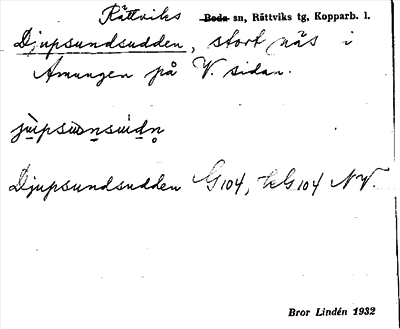 Rättviks Boda sn, Rättviks tg, Kopparb. l.
Djupsundsudden, stort näs i
Amungen på V. sidan.
Djupsundsudden G104, G104 NV.
Bror Lindén 1932